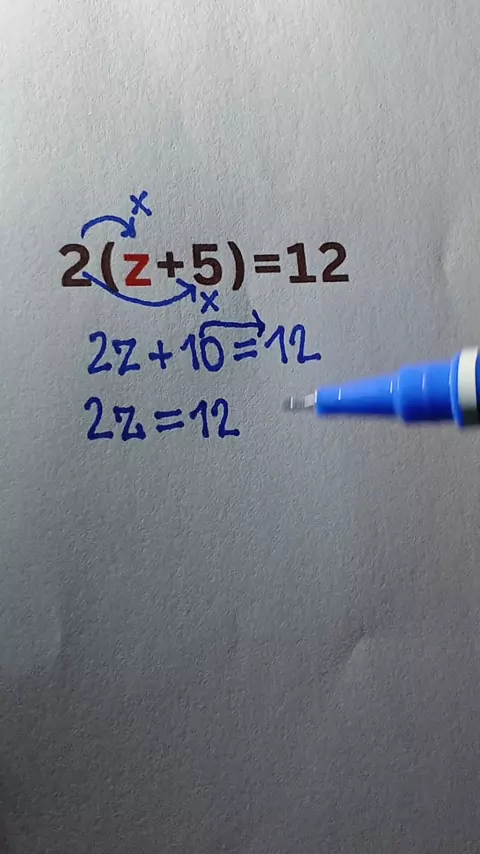 x
2(z+5)=12
x
2z+10=12
2z=12